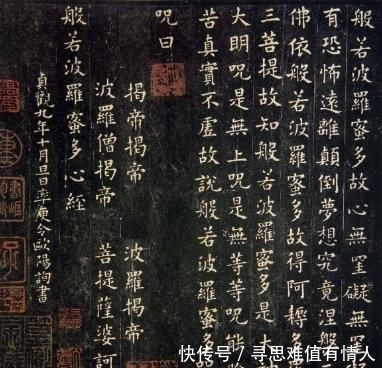 般若波羅蜜多故心無罣礙無罣
有恐怖遠離顛倒夢想究竟涅槃
佛依般若波羅蜜多故得阿耨多
三菩提故知般若波羅蜜多是大神
大明呪是無上呪是無等等呪能除
苦真實不虛故說般若波羅蜜多
呪曰
揭帝揭帝 波羅揭帝
波羅僧揭帝 菩提薩婆訶
般若波羅蜜多心經
貞觀九年十月旦日率更令歐陽詢書
快传号 / 寻思难值有情人